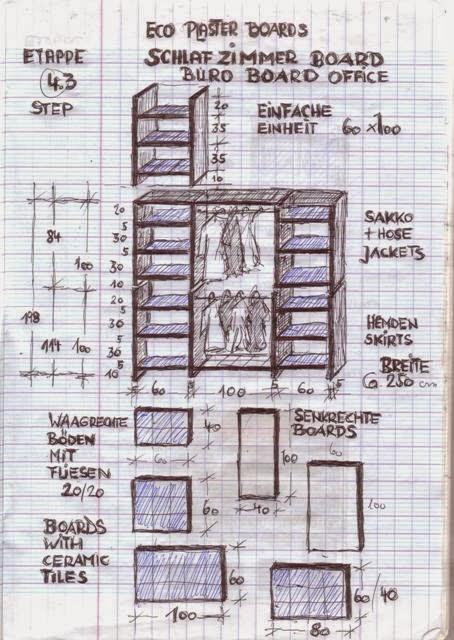 ECO PLASTER BOARDS
ETAPPE
4.3
STEP
SCHLAFZIMMER BOARD
BÜRO BOARD OFFICE
20
35
35
10
EINFACHE
EINHEIT 60 x 100
20
5
30
5
30
10
20
5
30
5
30
10
84
100
198
114
100
SAKKO
+ HOSE
JACKETS
HEMDEN
SKIRTS
BREITE
G. 250 cm
5
60
5
100
5
60
5
WAAGRECHTE
BÖDEN
MIT
FLIESEN
20/20
40
60
60
100
40
SENKRECHTE
BOARDS
60
100
BOARDS
WITH
CERAMIC
TILES
60
100
60/40
80